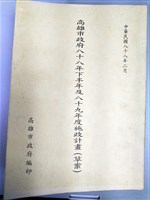 中華民國八十八年二月
高雄市政府八十八年下半年及八十九年度施政計畫(草案)
高雄市政府編印